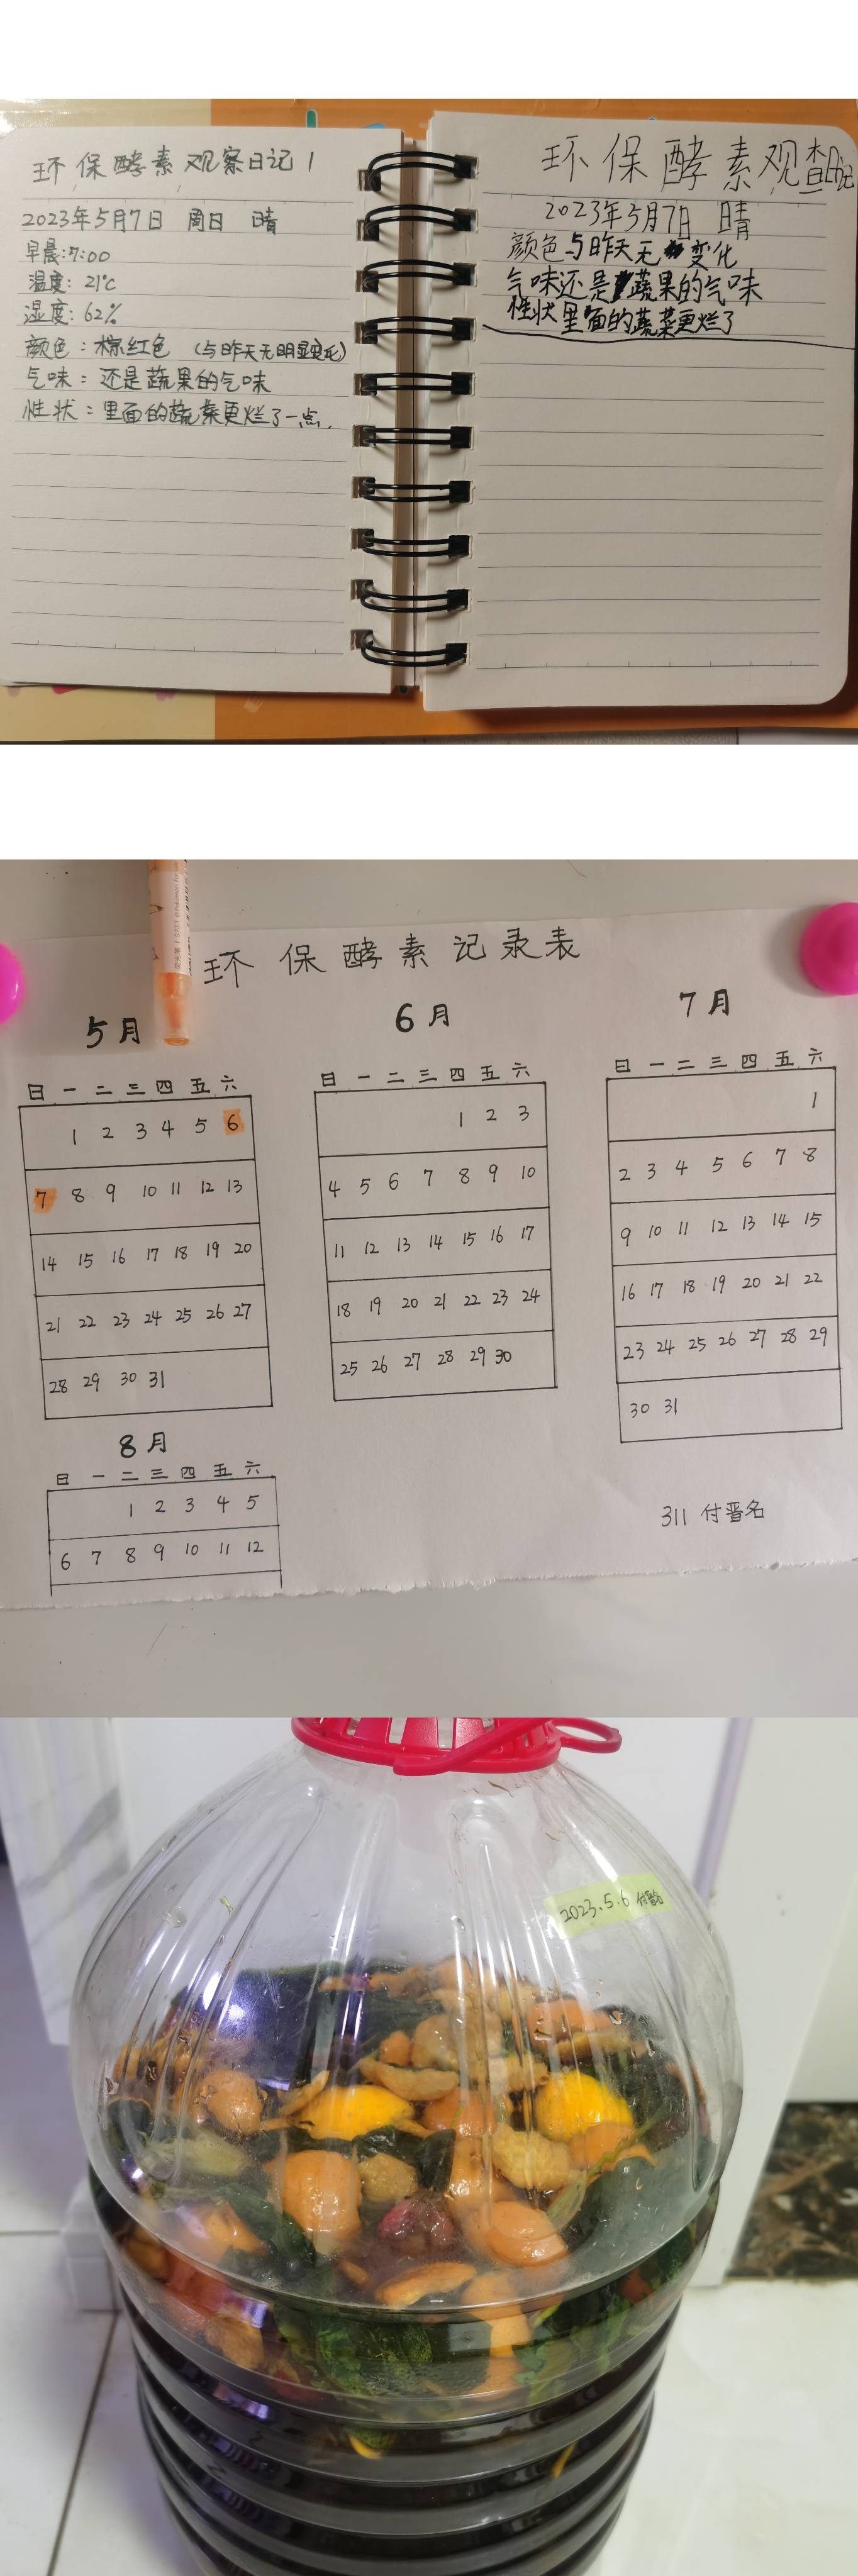 环保酵素观察日记1
2023年5月7日 周日 晴
早晨:7:00
温度: 21℃
湿度: 62%
颜色: 棕红色 (与昨天无明显变化)
气味: 还是蔬果的气味
性状: 里面的蔬菜更烂了一点.
环保酵素观察日记
2023年5月7日 晴
颜色与昨天无变化
气味还是蔬果的气味
性状里面的蔬菜更烂了
环保酵素记录表
5月
日 一 二 三 四 五 六
1 2 3 4 5 6
7 8 9 10 11 12 13
14 15 16 17 18 19 20
21 22 23 24 25 26 27
28 29 30 31
6月
日 一 二 三 四 五 六
1 2 3
4 5 6 7 8 9 10
11 12 13 14 15 16 17
18 19 20 21 22 23 24
25 26 27 28 29 30
7月
日 一 二 三 四 五 六
1
2 3 4 5 6 7 8
9 10 11 12 13 14 15
16 17 18 19 20 21 22
23 24 25 26 27 28 29
30 31
8月
日 一 二 三 四 五 六
1 2 3 4 5
6 7 8 9 10 11 12
311 付晋名
2023.5.6 付晋名